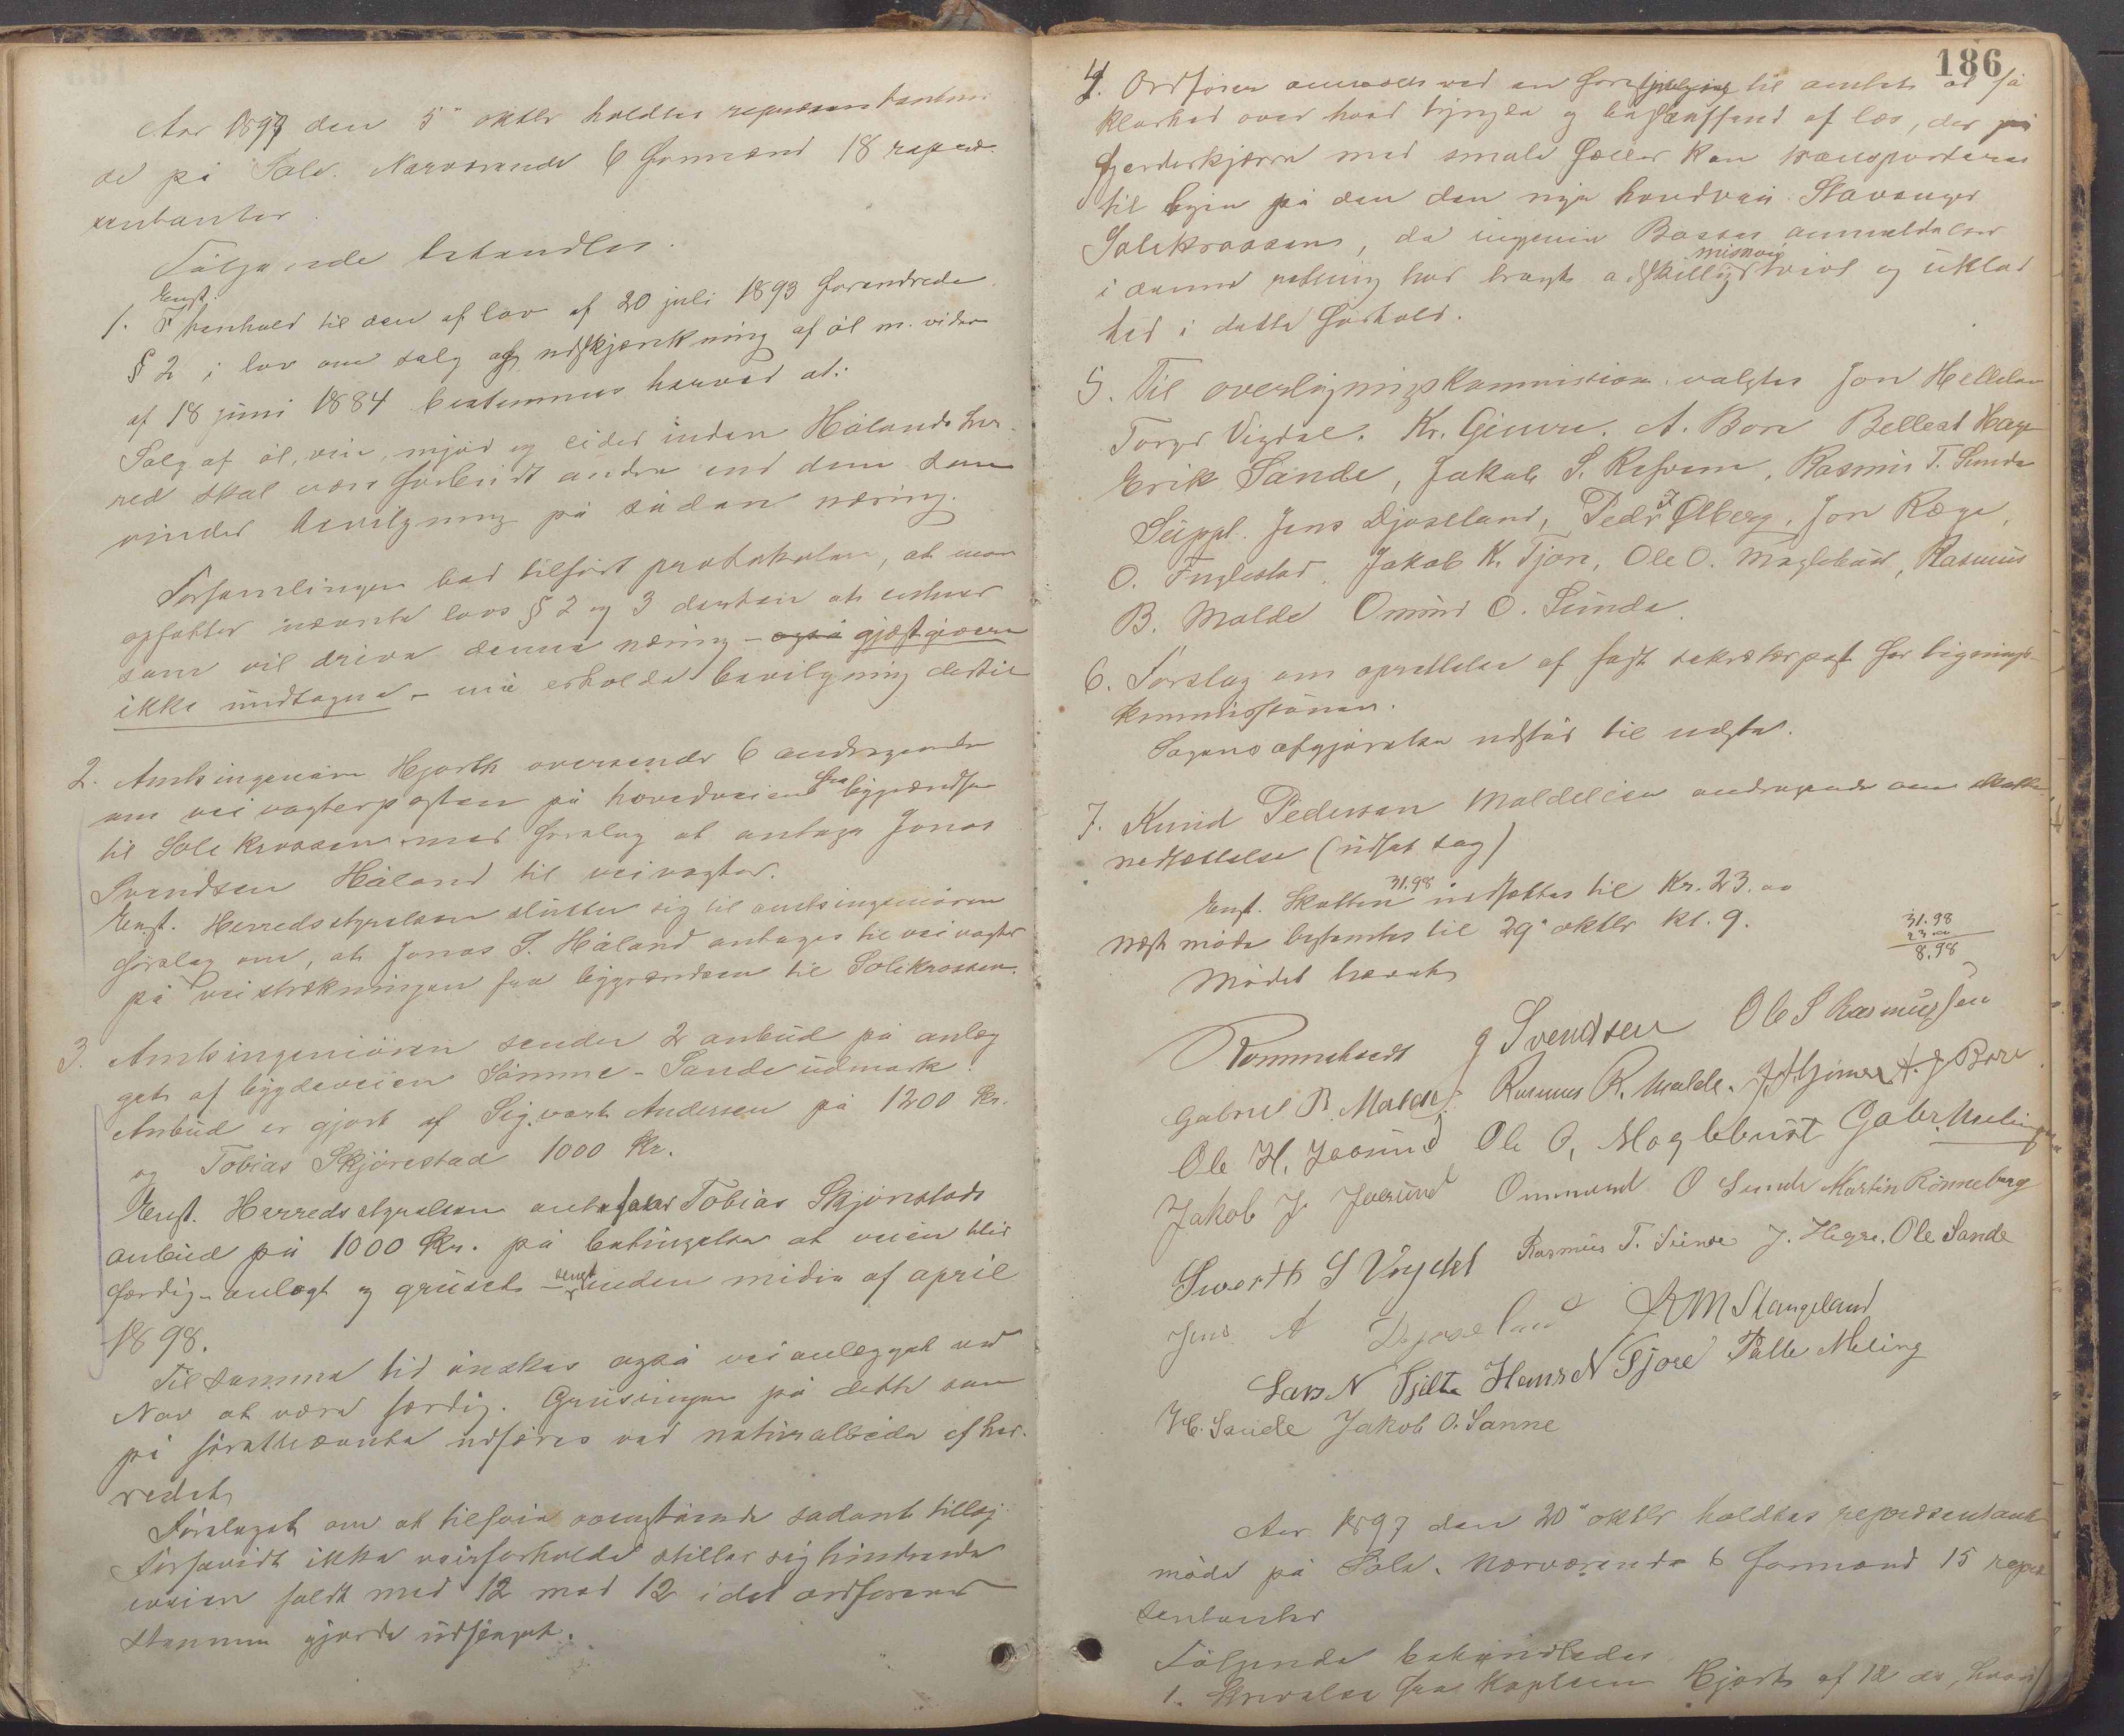 Aar 1897 den 5te oktbr holdtes repræsentantmø
de på Sole. Nærværende 6 formænd 18 repræ-
sentanter.
Følgende behandles.
1. Enst. I henhold til den af lov af 20 juli 1893 forandrede
§ 2 i lov om salg og udskjænkning af øl m. videre
af 18 juni 1884 bestemmes herved at:
Salg af øl, vin, mjød og cider inden Hålands her-
red skal være forbudt andre end dem som
vinder bevilgning på sådan næring.
Forsamlingen bad tilført protokolen, at man
opfatter nævnte lovs § 2 og 3 derhen at enhver
som vil drive denne næring - også gjæstgivere
ikke undtagne - må erholde bevilgning dertil
2. Amtsingeniør Hjorth oversender 6 andragender
om veivogterposten på hovedveien fra bygrændsen
til Sole krossen med forslag at antage Jonas
Svendsen Håland til veivogter.
Enst. Herredsstyrelsen slutter sig til amtsingeniøren
forslag om, at Jonas S. Håland antages til veivogter
på veistrækningen fra bygrændsen til Solekrossen.
3. Amtsingeniøren sender 2 anbud på anlæg
get af bygdeveien Sømme - Sande udmark.
Anbud er gjort af Sigvart Andersen på 1200 Kr.
og Tobias Skjørestad 1000 Kr.
Enst. Herredsstyrelsen anbefaler Tobias Skjørestads
anbud på 1000 Kr. på betingelse at veien blir
færdig anlagt og gruset senest inden midten af april
1898.
Til samme tid ønskes også veianlægget ved
Nav at være færdig. Grusingen på dette som
på førstnævnte udføres ved naturalarbeide af her-
redet
Forslaget om at tilføie ovenstående sådant tillæg
forsavidt ikke veirforholde stiller sig hindrende
iveien faldt med 12 mod 12 idet ordførerens
stemme gjorde udslaget.
186
4. Ordfører anmodes ved en forespørgsel til amtet at få
klarhed over hvad tyngde og beskaffenhed af læs, der på
fjerderkjærre med smale fælger kan transporteres
til byen på den den nye hovedvei Stavanger
Solekrossen, da ingeniør Bassøe anmeldelser
i denne retning har bragt adskillig misnøie tvivl og uklar
hed i dette forhold.
5. Til overligningskommission valgtes Jon Helleland
Torger Vigdel. Kr. Gimre. A. Bore Bellest Haga
Erik Sande, Jakob S. Refsnes, Rasmus T. Sunde
Suppl. Jens Djoseland, Peder J Ølberg, Jon Ræge,
O. Fuglestad, Jakob K. Tjore, Ole O. Maglebust, Rasmus
B. Malde Omund O. Sunde.
6. Forslag om oprettelse af fast sekretærpost for lignings-
kommissionen.
Sagens afgjørelse udstår til næste.
7. Knud Pedersen Maldelien andragende om skatte-
nedsættelse (udsat sag)
Enst. Skatten 31.98 nedsættes til Kr. 23.00
næst møde bestemtes til 29de oktbr kl. 9.
31.98
23.00
8.98
Mødet hævet
Rommetvedt J Svendsen Ole S Rasmussen
Gabriel B. Malde Rasmus R. Malde. J. A Gimre A. J Bore
Ole H. Joasund Ole O, Maglebust Gabr. Meling
Jakob J. Joasund Ommund O Sunde Martin Rønneberg
Sivert S Vigdel Rasmus T. Sunde J. Hegre. Ole Sande
Jens A Djoseland R M Stangeland
Lars N Tjelta Hans N Tjore Palle Meling
H. Sande Jakob O. Sanne
Aar 1897 den 20de oktbr. holdtes repræsentant
møde på Sole. Nærværende 6 formænd 15 repræ
sentanter
Følgende behandledes
1. Skrivelse fra Kaptein Hjorth af 12 ds, hvori